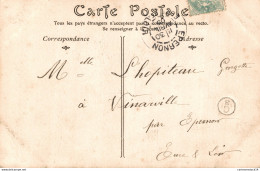 Carte Postale
Tous les pays étrangers n'acceptent pas la correspondance au recto.
Se renseigner à la
EPERNON
Correspondance Adresse
Melle Lhopiteau Georgette
à Vinarville
par Epernon
Eure & Loir